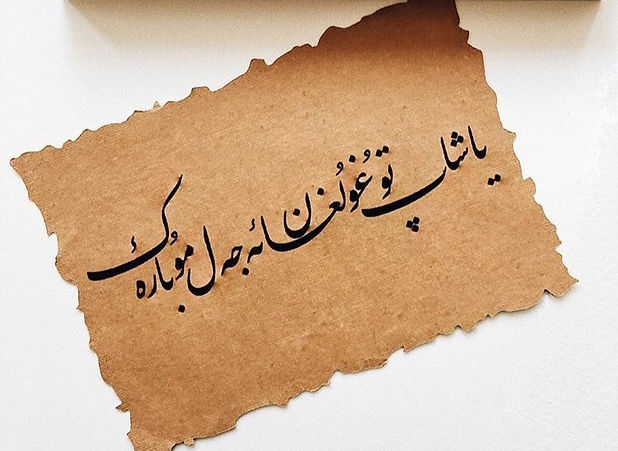 یاشاپ توغُولُغان ئەجەل مُوبارەك